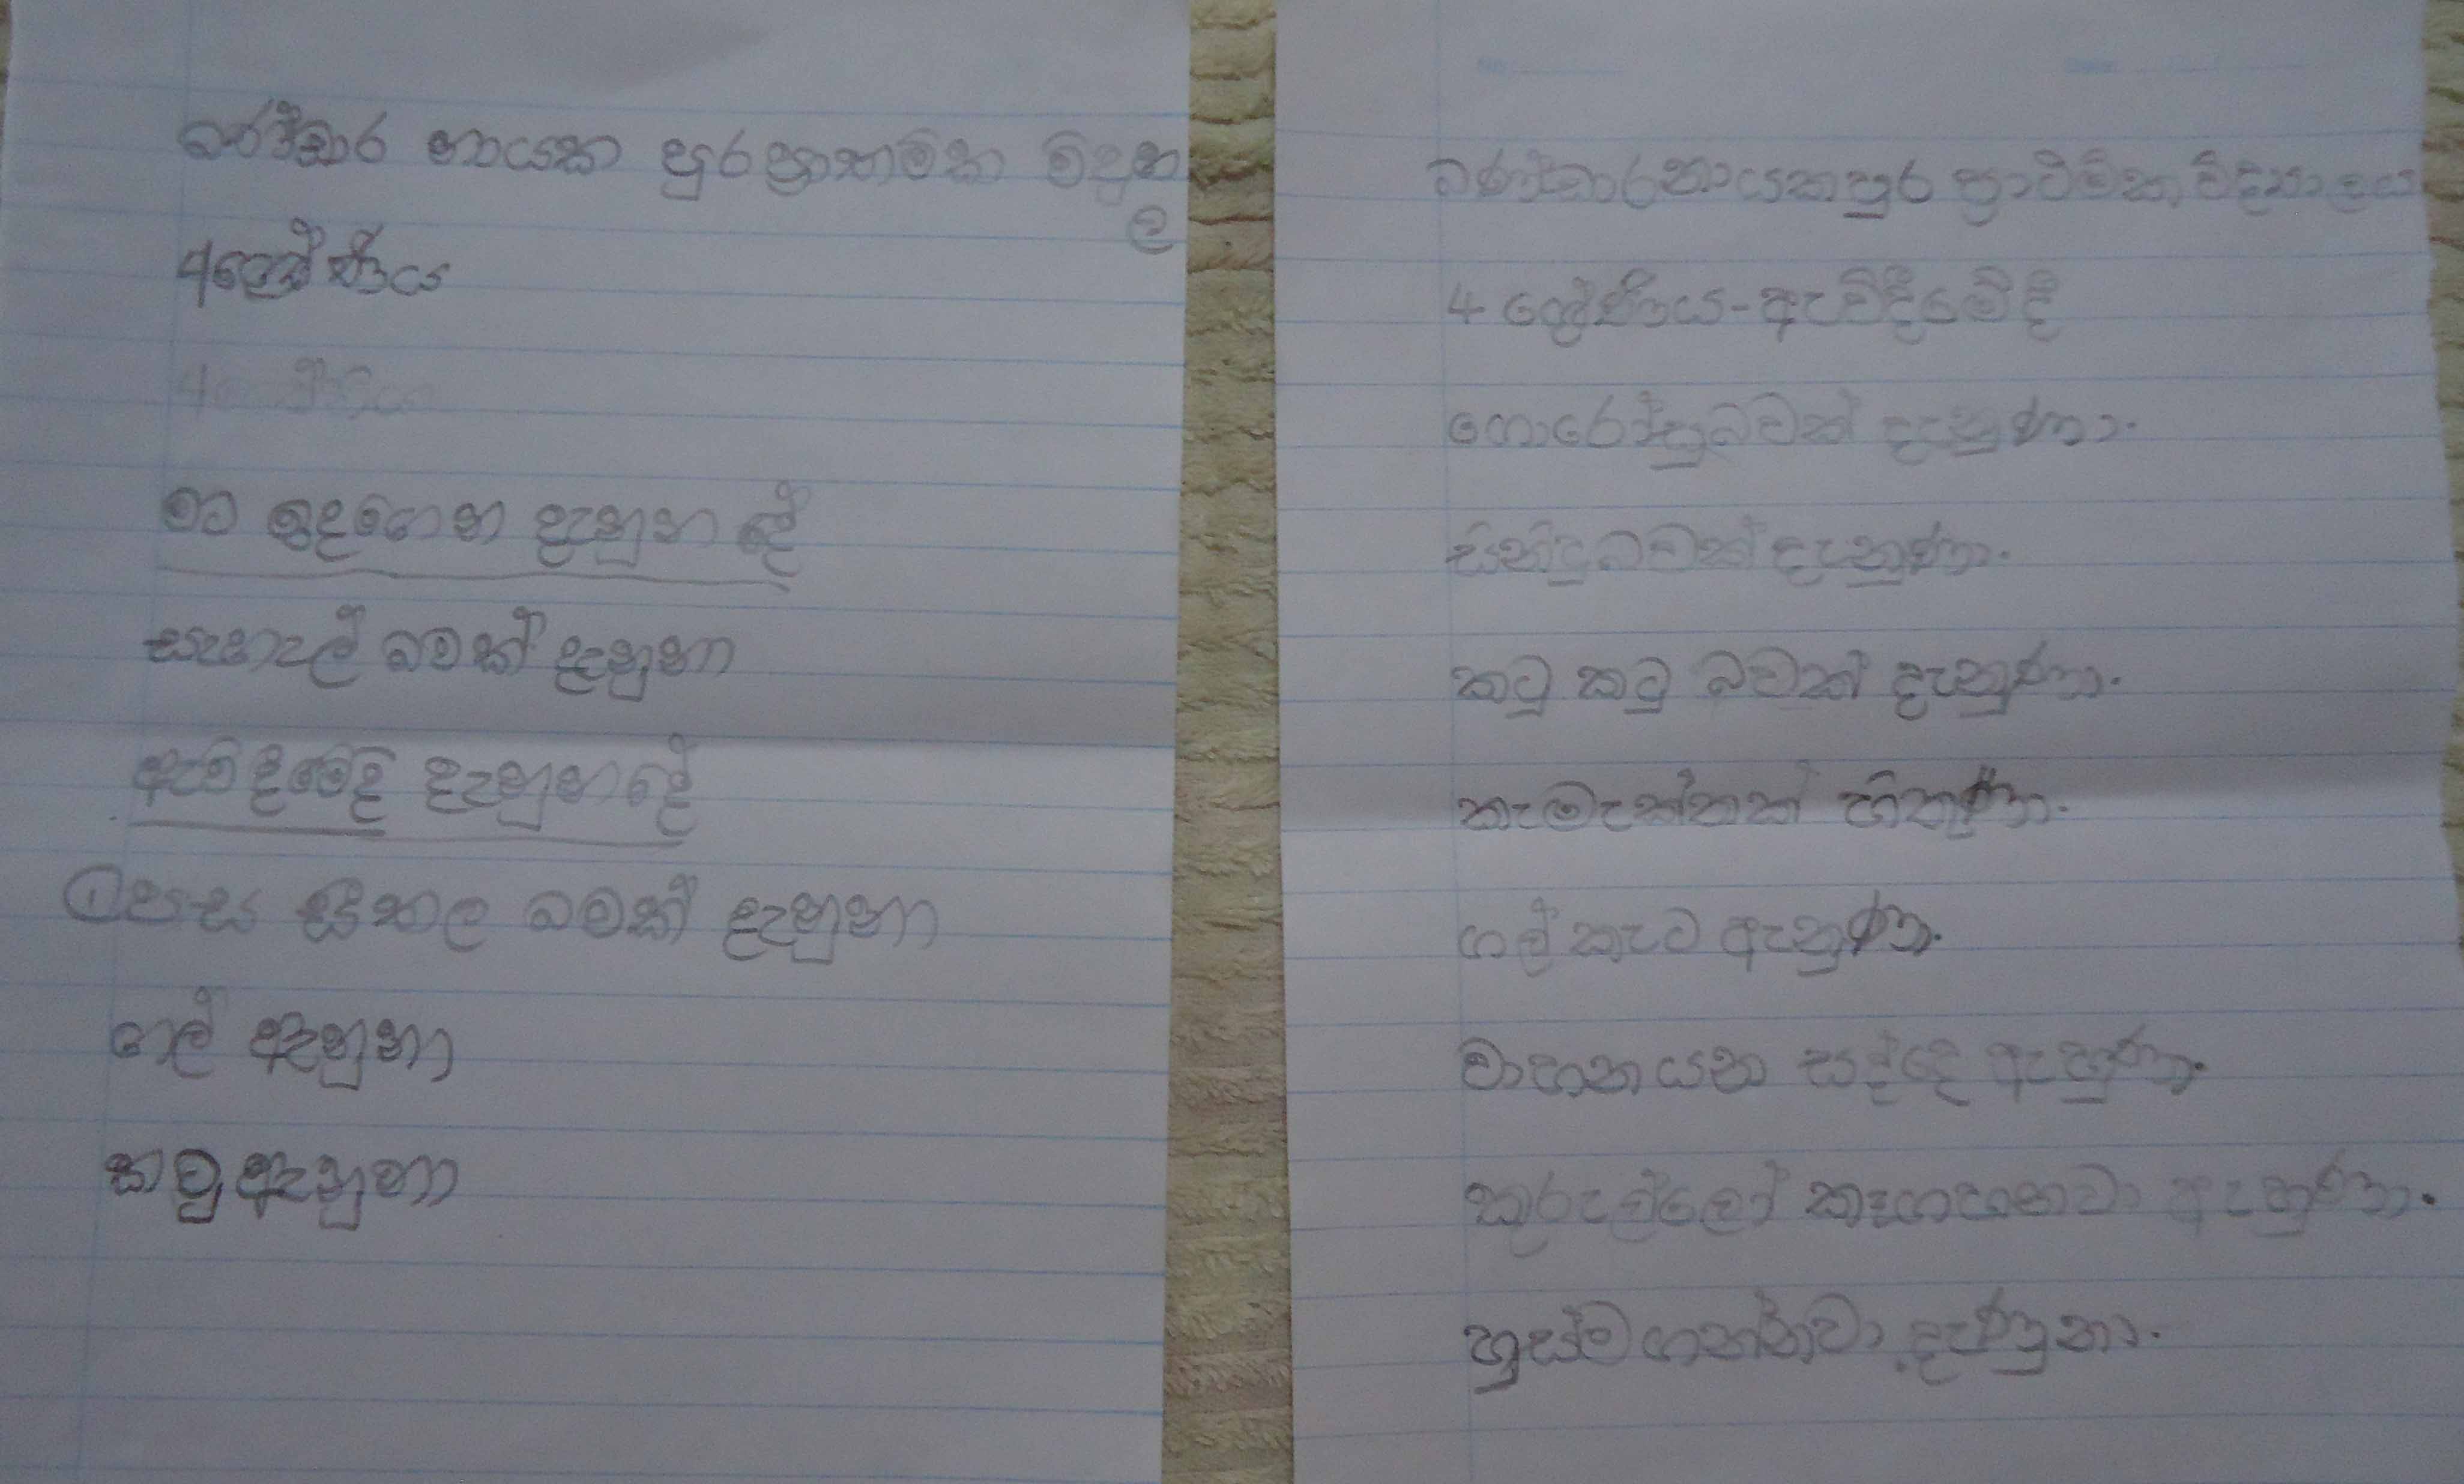 බන්ඩාර නායක පුර ප්‍රාතමික විදුහ
ල
4ශ්‍රේණිය
4ශ්‍රේණිය
මට ඉදගෙන දැනුන දේ
සැහැල් බවක් දැනුනා
ඇවිදිමේදි දැනුනදේ
①පය සීතල බවක් දැනුනා
ගල් ඇනුනා
කටු ඇනුනා
බණ්ඩාරනායකපුර ප්‍රාථමික විද්‍යාලය
4 ශ්‍රේණිය - ඇවිදීමේ දී
ගොරෝසුබවක් දැනුණා.
සිනිදුබවක් දැනුණා.
කටු කටු බවක් දැනුණා.
කැමැත්තක් හිතුණා.
ගල් කැට ඇනුණා.
වාහනයන සද්දෙ ඇහුණා.
කුරුල්ලෝ කෑගහනවා ඇහුණා.
හුස්ම ගන්නවා දැණුනා.